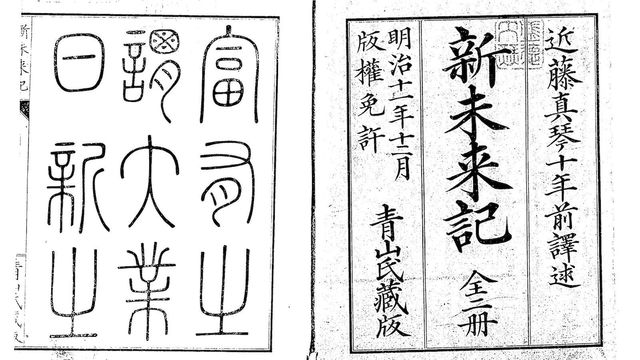 近藤真琴十年前譯述
新未来記 全二册
明治十一年十二月
版權免許
青山氏藏版
富有之
謂大業
日新之
新未来記
青山氏藏版